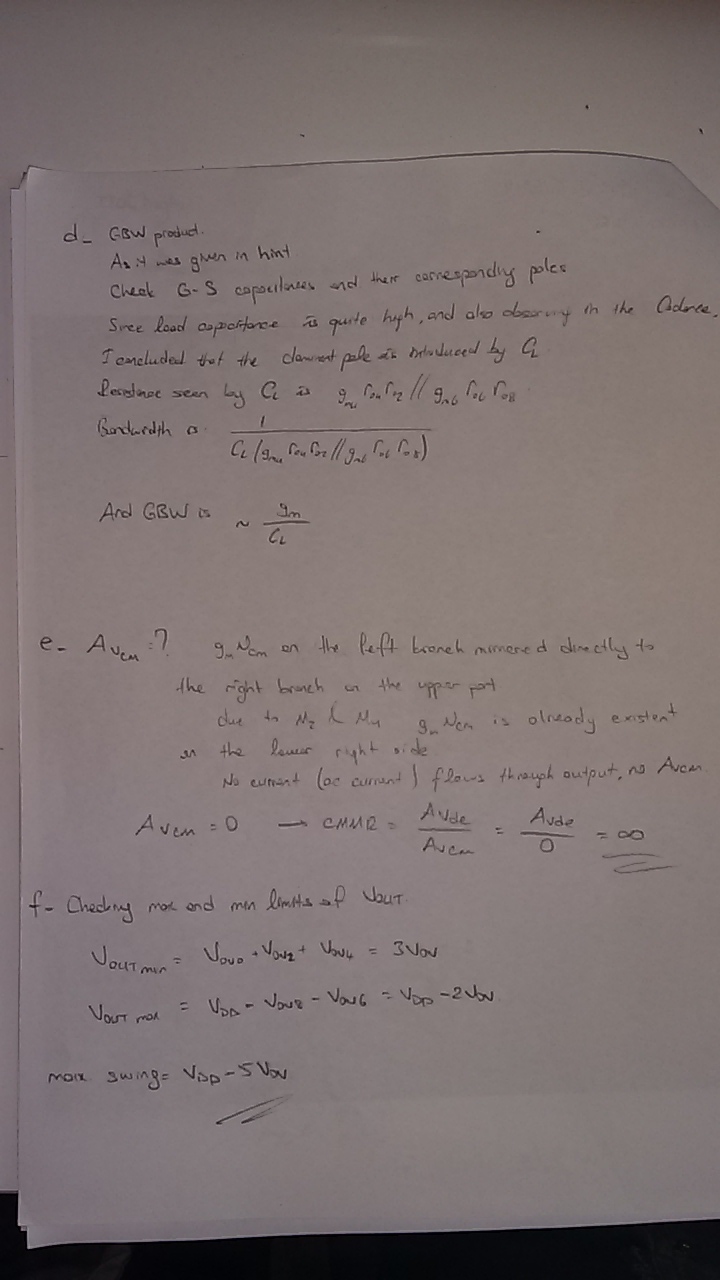 d- GBW product.
As it was given in hint
Check G-S capacitances and their corresponding poles
Since load capacitance is quite high, and also observing in the Cadence,
I concluded that the dominant pole is introduced by CL
Resistance seen by CL is gm4 ro4 ro2 // gm6 ro6 ro8
Bandwidth is 1 / CL (gm4 ro4 ro2 // gm6 ro6 ro8)
And GBW is ~ gm / CL
e- AVCM = ? gm Vcm on the left branch mirrored directly to
the right branch on the upper part
due to M2 & M4 gm Vcm is already existent
on the lower right side
No current (ac current) flows through output, no AVCM.
AVCM = 0 → CMMR = AVde / AVCM = AVde / 0 = ∞
f- Checking max and min limits of VOUT
VOUT min = VOV0 + VOV2 + VOV4 = 3VOV
VOUT max = VDD - VOV8 - VOV6 = VDD - 2VOV
max swing = VDD - 5VOV